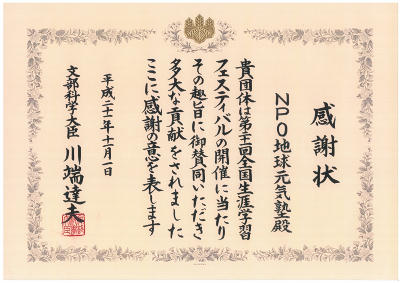 感謝状
NPO地球元気塾殿
貴団体は第二十一回全国生涯学習
フェスティバルの開催に当たり
その趣旨に御賛同いただき
多大な貢献をされました
ここに感謝の意を表します
平成二十一年十一月一日
文部科学大臣 川端達夫